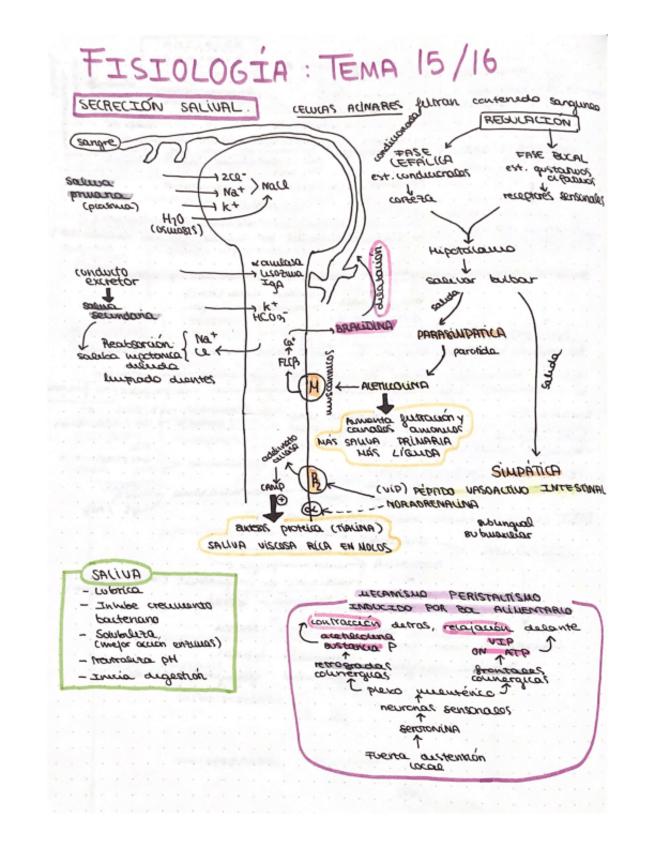 FISIOLOGÍA: TEMA 15/16
SECRECIÓN SALIVAL.
CELULAS ACINARES filtran contenido sanguneo
REGULACIÓN
sangre
condicionada
FASE
CEFÁLICA
est. condicionales
corteza
FASE BUCAL
est. gustativos
receptores sensoriales
Hipotálamo
salivar bulbar
salida
salida
PARASIMPÁTICA
parótida
SIMPÁTICA
saliva
primaria
(plasma)
2Cl⁻
Na⁺
K⁺
NaCl
H₂O
(osmosis)
α amilasa
lisozima
IgA
conducto
excretor
saliva
secundaria
K⁺
HCO₃⁻
Reabsorción
Na⁺
Cl⁻
saliva hipotónica
diluida
limpiado dientes
dilatación
BRAUDINA
Ca⁺
PLCβ
M
muscarínicos
ACETILCOLINA
Aumenta filtración y
canales aniónicos
MÁS SALIVA PRIMARIA
MÁS LÍQUIDA
adenilato
ciclasa
cAMP
+
β₂
α
(VIP) PÉPTIDO VASOACTIVO INTESTINAL
NORADRENALINA
sublingual
submaxilar
síntesis proteica (TIALINA)
SALIVA VISCOSA RICA EN MOCOS
SALIVA
- Lubrica
- Inhibe crecimiento
bacteriano
- Solubiliza
(mejor acción enzimas)
- Neutraliza pH
- Inicia digestión
MECANISMO PERISTALTISMO
INDUCIDO POR BOL ALIMENTARIO
contracción detras, relajación delante
acetilcolina
sustancia P
VIP
ON ATP
retrogradas
colinérgicas
frontales
colinérgicas
plexo mientérico
neuronas sensoriales
SEROTONINA
Fuerta distensión
local